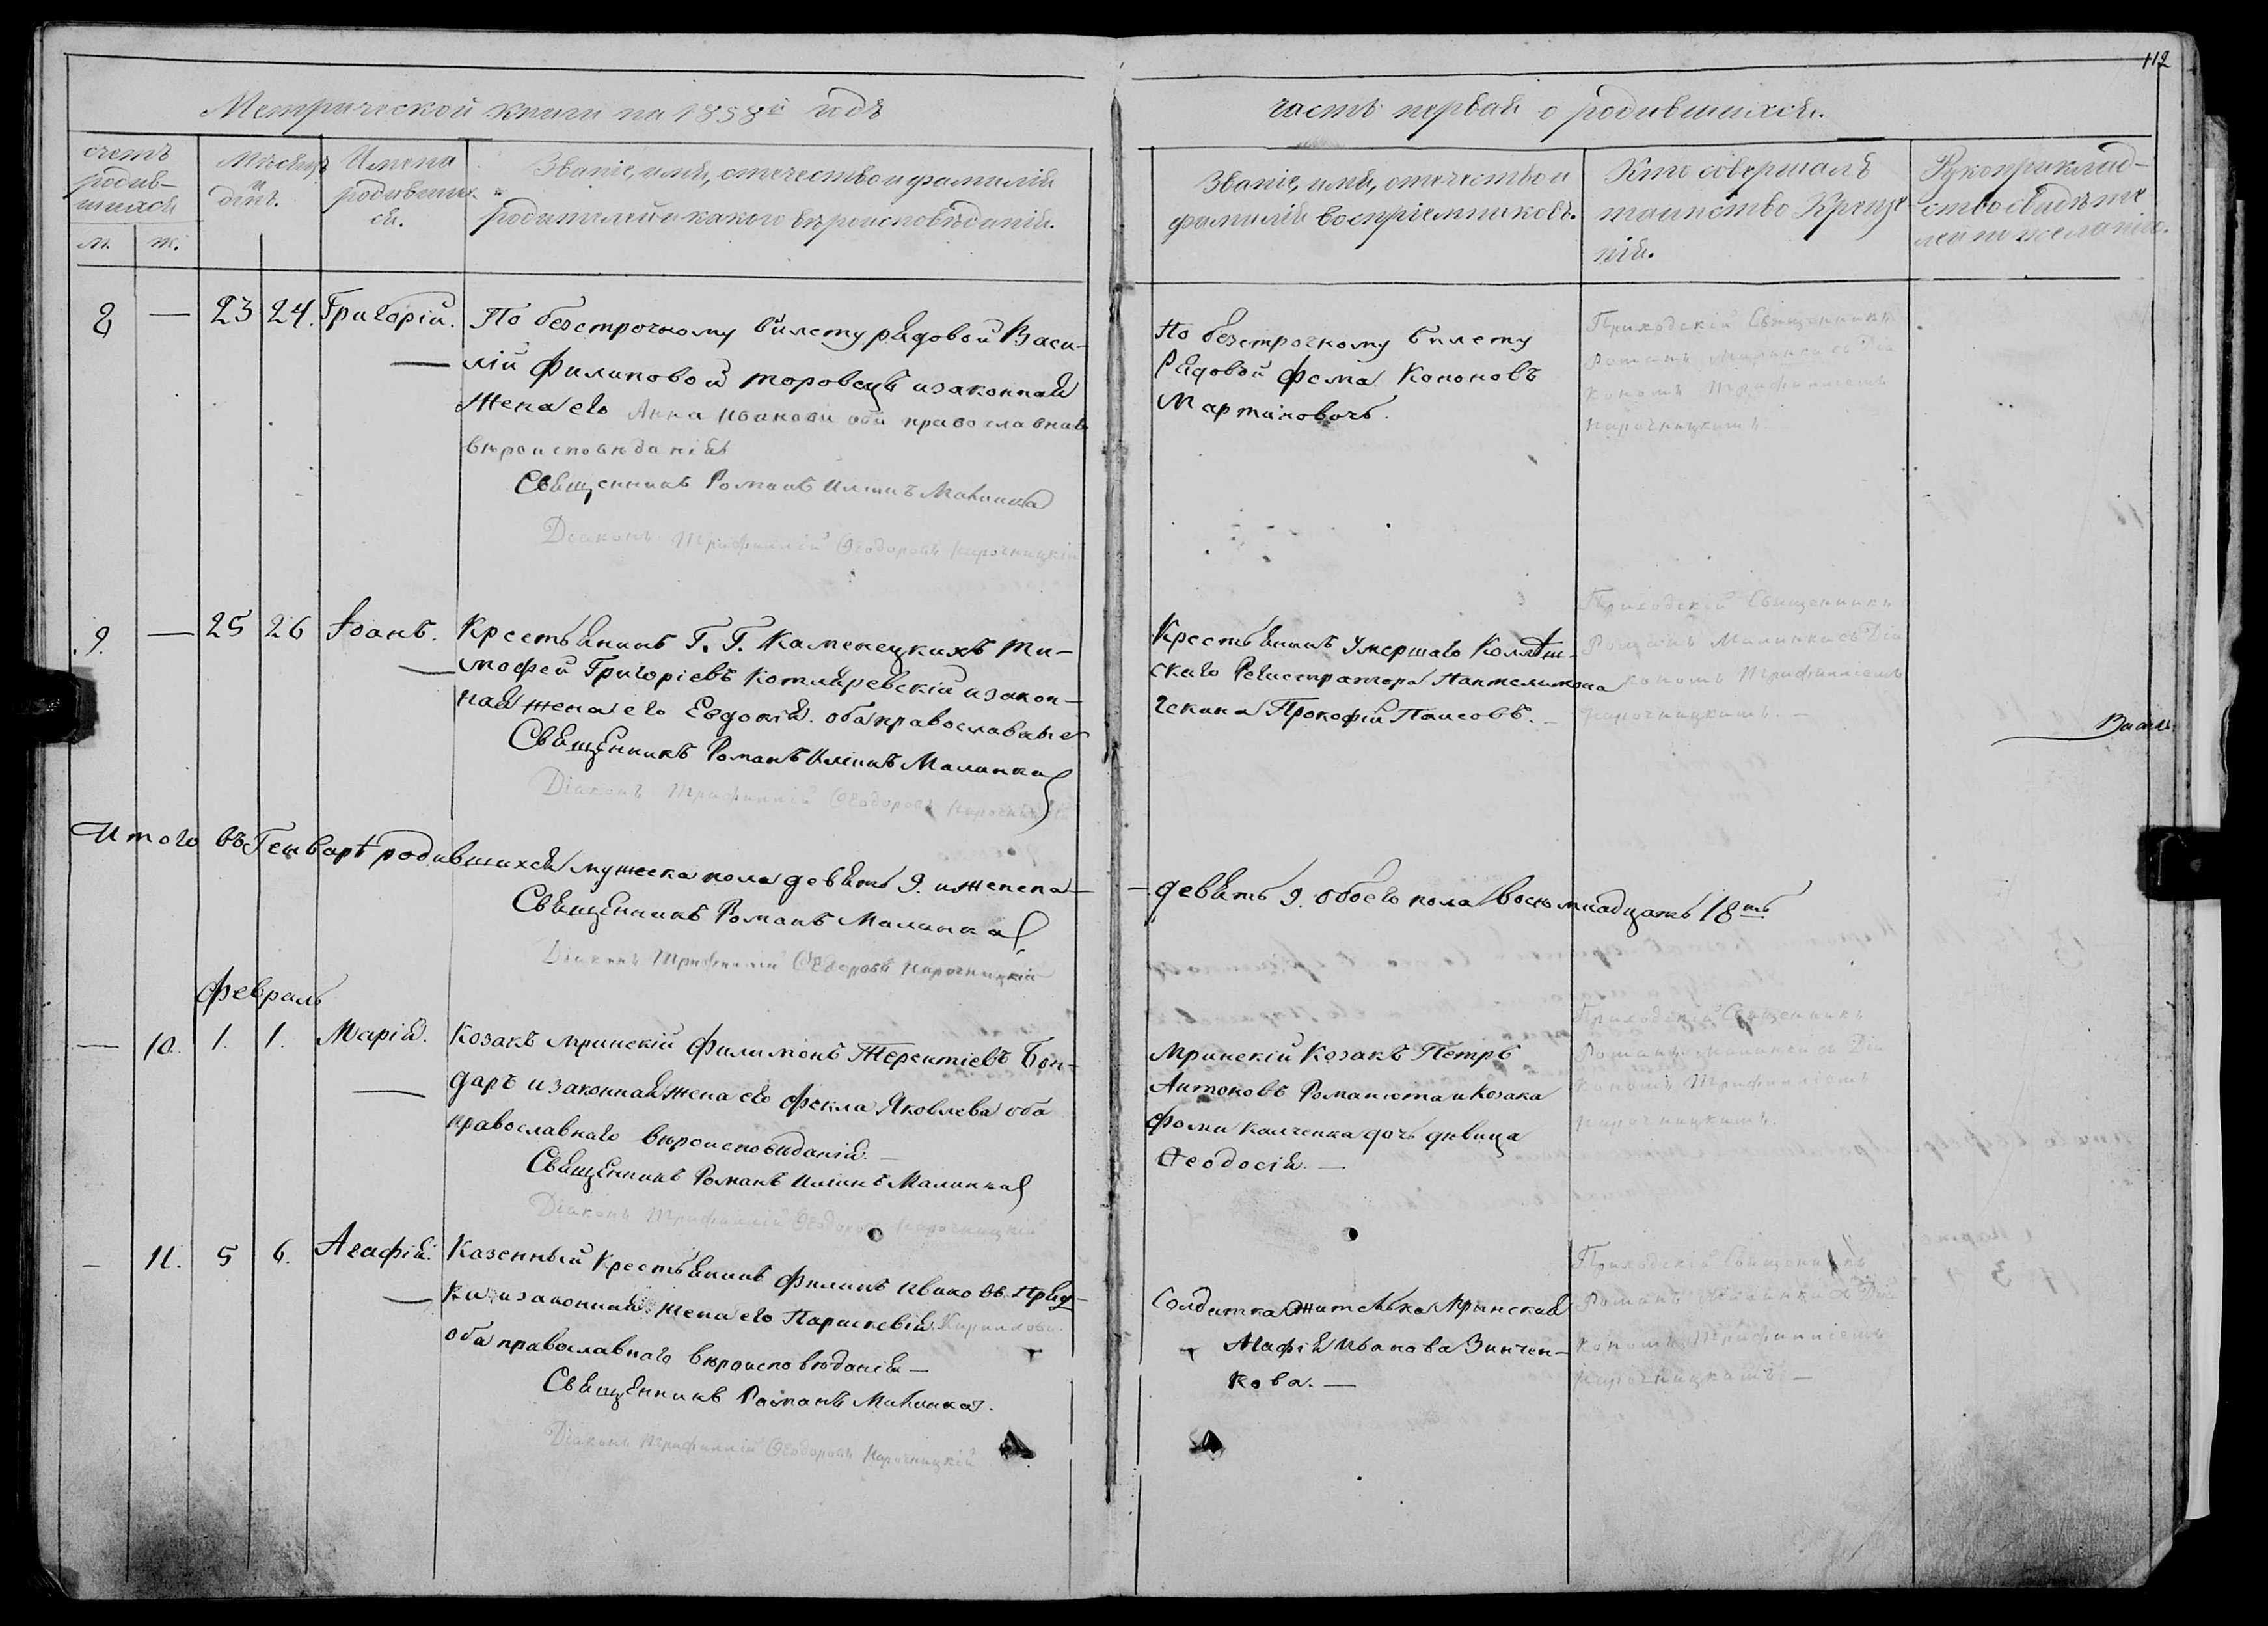 112
Метрической книги на 1858й годъ
часть первая о родившихся.
счетъ родив-шихся
м. ж.
Мѣсяцъ и день.
Имена родившихся.
Званіе, имя, отечество и фамилія
родителей и какого вѣроисповѣданія.
Званіе, имя, отечество и
фамилія воспріемниковъ.
Кто совершалъ
таинство Креще
нія.
Рукоприклад-
ство свидѣте
лей по желанію.
8 — 23 24. Григорій.
По безсрочному билету рядовой Васи-
лій Филиповой Моровецъ и законная
жена его Анна Иванова оба православнаго
вѣроисповѣданія
Священникъ Романъ Иліинъ Малинка
Діаконъ Трифиллій Ѳеодоровъ Нарочницкій
По безсрочному билету
Рядовой Фома Кононовъ
Мартиновичъ.
Приходскій Священникъ
Романъ Малинка съ Діа
кономъ Трифилліемъ
Нарочницкимъ.
9. — 25 26 Іоанъ.
Крестьянинъ Г. Г. Каменецкихъ Ти-
мофей Григоріевъ Котляревскій и закон-
ная жена его Евдокія. оба православные
Священникъ Романъ Иліинъ Малинка
Діаконъ Трифиллій Ѳеодоровъ Нарочницкій
Крестьянинъ Умершаго Коллѣж-
скаго Регистратора Пантелимона
Чекана Прокофій Паисовъ. —
Приходскій Священникъ
Романъ Малинка съ Діа
кономъ Трифилліемъ
Нарочницкимъ. —
Итого въ Генварѣ родившихся мужеска пола девять 9. и женска —
— девять 9. обоего пола восьмнадцать 18ть
Священникъ Романъ Малинка
Діаконъ Трифиллій Ѳеодоровъ Нарочницкій
Февраль
— 10. 1. 1. Марія.
Козакъ мринскій Филимонъ Терентіевъ Бон-
даръ и законная жена его Фекла Яковлева оба
православнаго вѣроисповѣданія. —
Священникъ Романъ Иліинъ Малинка
Діаконъ Трифиллій Ѳеодоровъ Нарочницкій
Мринскій Козакъ Петръ
Антоновъ Романюта и Козака
Фомы Калченка дочь дѣвица
Ѳеодосія. —
Приходскій Священникъ
Романъ Малинка съ Діа
кономъ Трифилліемъ
Нарочницкимъ.
— 11. 5 6. Агафія.
Казенный Крестьянинъ Филипъ Ивановъ Пряд-
ка и законная жена его Параскевія Кирилова
оба православнаго вѣроисповѣданія —
Священникъ Романъ Малинка.
Діаконъ Трифиллій Ѳеодоровъ Нарочницкій
Солдатка жителька Мринская
Агафія Иванова Зинчен-
кова. —
Приходскій Священникъ
Романъ Малинка съ Діа
кономъ Трифилліемъ
Нарочницкимъ —